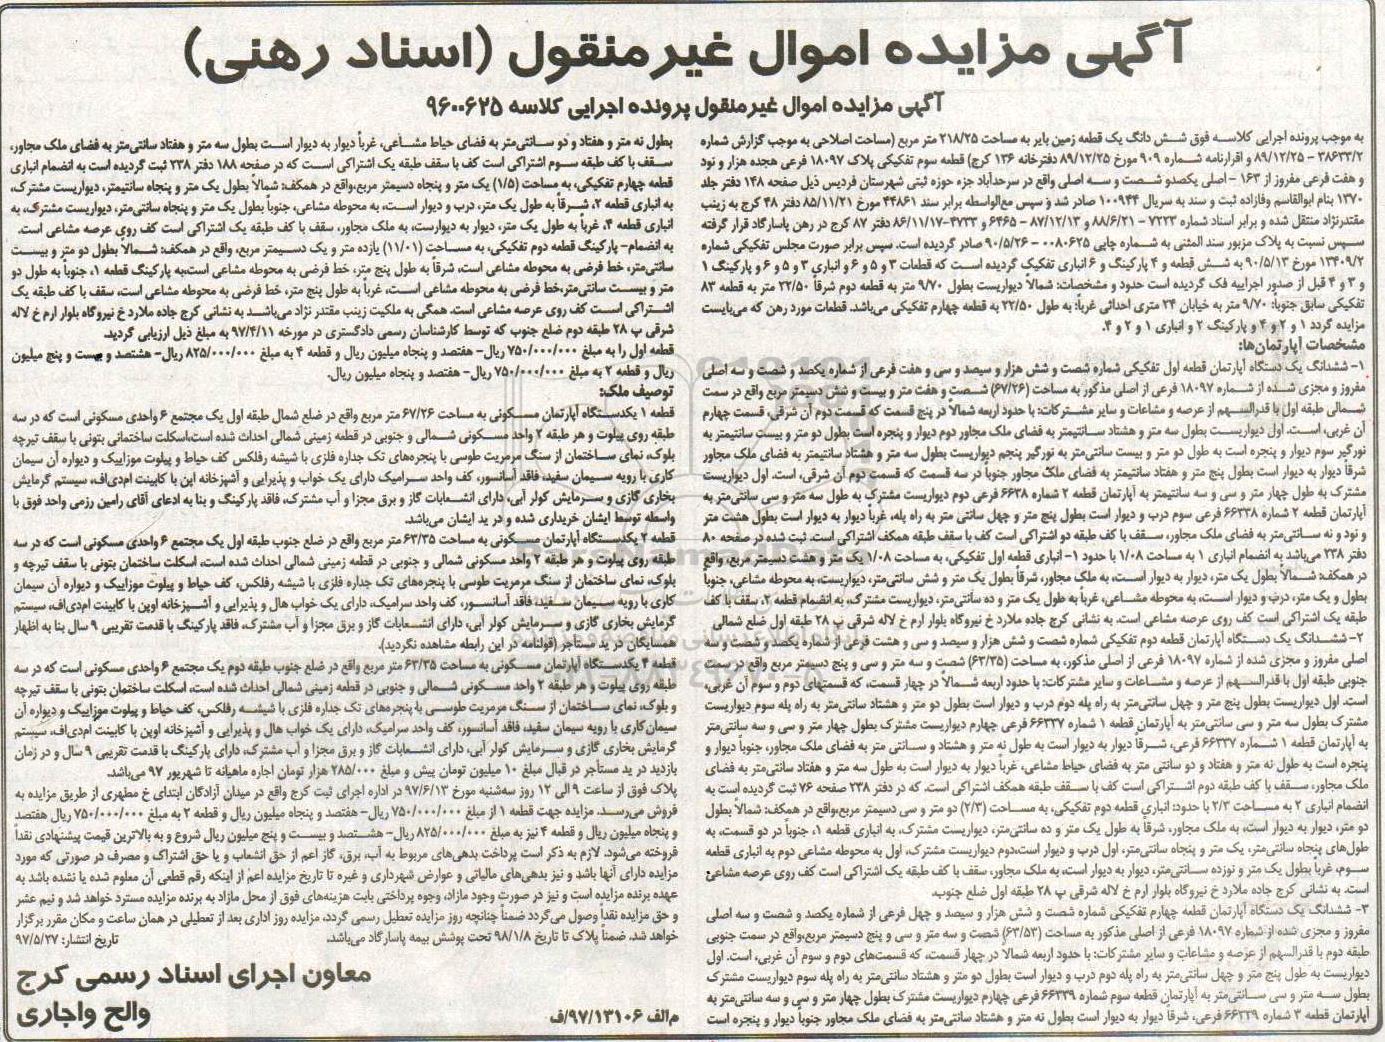 آگهی مزایده اموال غیرمنقول (اسناد رهنی)
آگهی مزایده اموال غیرمنقول پرونده اجرایی کلاسه ۹۶۰۰۶۲۵
به موجب پرونده اجرایی کلاسه فوق شش دانگ یک قطعه زمین بایر به مساحت ۲۱۸/۲۵ متر مربع (مساحت اصلاحی به موجب گزارش شماره
۳۸۶۳۳/۲ – ۸۹/۱۲/۲۵ و اقرارنامه شماره ۹۰۹ مورخ ۸۹/۱۲/۲۵ دفترخانه ۱۳۶ کرج) قطعه سوم تفکیکی پلاک ۱۸۰۹۷ فرعی هجده هزار و نود
و هفت فرعی مفروز از ۱۶۳ – اصلی یکصدو شصت و سه اصلی واقع در سرحدآباد جزء حوزه ثبتی شهرستان فردیس ذیل صفحه ۱۴۸ دفتر جلد
۱۳۷۰ بنام ابوالقاسم وفازاده ثبت و سند به سریال ۱۰۰۹۴۴ صادر شد و سپس مع‌الواسطه برابر سند ۴۴۸۶۱ مورخ ۸۵/۱۱/۲۱ دفتر ۴۸ کرج به زینب
مقتدرنژاد منتقل شده و برابر اسناد شماره ۷۲۲۳ – ۸۸/۶/۲۱ و ۸۷/۱۲/۱۳ – ۶۴۶۵ و ۴۷۳۳-۸۶/۱۱/۱۷ دفتر ۸۷ کرج در رهن پاسارگاد قرار گرفته
سپس نسبت به پلاک مزبور سند المثنی به شماره چاپی ۰۰۸۰۶۲۵ – ۹۰/۵/۲۶ صادر گردیده است. سپس برابر صورت مجلس تفکیکی شماره
۱۳۴۰۹/۲ مورخ ۹۰/۵/۱۳ به شش قطعه و ۴ پارکینگ و ۶ انباری تفکیک گردیده است که قطعات ۳ و ۵ و ۶ و انباری ۳ و ۵ و ۶ و پارکینگ ۱
و ۳ و ۴ قبل از صدور اجراییه فک گردیده است حدود و مشخصات: شمالاً دیواریست بطول ۹/۷۰ متر به قطعه دوم شرقاً ۲۲/۵۰ متر به قطعه ۸۳
تفکیکی سابق جنوبا: ۹/۷۰ متر به خیابان ۲۴ متری احداثی غرباً: به طول ۲۲/۵۰ به قطعه چهارم تفکیکی می‌باشد. قطعات مورد رهن که می‌بایست
مزایده گردد ۱ و ۲ و ۴ و پارکینگ ۲ و انباری ۱ و ۲ و ۴.
مشخصات آپارتمان‌ها:
۱- ششدانگ یک دستگاه آپارتمان قطعه اول تفکیکی شماره شصت و شش هزار و سیصد و سی و هفت فرعی از شماره یکصد و شصت و سه اصلی
مفروز و مجزی شده از شماره ۱۸۰۹۷ فرعی از اصلی مذکور به مساحت (۶۷/۲۶) شصت و هفت متر و بیست و شش دسیمتر مربع واقع در سمت
شمالی طبقه اول با قدرالسهم از عرصه و مشاعات و سایر مشترکات: با حدود اربعه شمالاً در پنج قسمت که قسمت دوم آن شرقی، قسمت چهارم
آن غربی، است. اول دیواریست بطول سه متر و هشتاد سانتیمتر به فضای ملک مجاور دوم دیوار و پنجره است بطول دو متر و بیست سانتیمتر به
نورگیر سوم دیوار و پنجره است به طول دو متر و بیست سانتی‌متر به نورگیر پنجم دیواریست بطول سه متر و هشتاد سانتیمتر به فضای ملک مجاور
شرقاً دیوار به دیوار است بطول پنج متر و هفتاد سانتیمتر به فضای ملک مجاور جنوباً در سه قسمت که قسمت دوم آن شرقی، است. اول دیواریست
مشترک به طول چهار متر و سی و سه سانتیمتر به آپارتمان قطعه ۲ شماره ۶۶۳۸ فرعی دوم دیواریست مشترک به طول سه متر و سی سانتی‌متر به
آپارتمان قطعه ۲ شماره ۶۶۳۳۸ فرعی سوم درب و دیوار است بطول پنج متر و چهل سانتی متر به راه پله، غرباً دیوار به دیوار است بطول هشت متر
و نود و نه سانتی‌متر به فضای ملک مجاور، سقف با کف طبقه دو اشتراکی است کف با سقف طبقه همکف اشتراکی است. ثبت شده در صفحه ۸۰
دفتر ۲۳۸ می‌باشد به انضمام انباری ۱ به مساحت ۱/۰۸ با حدود ۱- انباری قطعه اول تفکیکی، به مساحت ۱/۰۸ یک متر و هشت دسیمتر مربع، واقع
در همکف: شمالاً بطول یک متر، دیوار به دیوار است، به ملک مجاور، شرقاً بطول یک متر و شش سانتی‌متر، دیواریست، به محوطه مشاعی، جنوبا
بطول و یک متر، درب و دیوار است، به محوطه مشاعی، غرباً به طول یک متر و ده سانتی‌متر، دیواریست مشترک، به انضمام قطعه ۲، سقف با کف
طبقه یک اشتراکی است کف روی عرصه مشاعی است. به نشانی کرج جاده ملارد خ نیروگاه بلوار ارم خ لاله شرقی پ ۲۸ طبقه اول ضلع شمالی
۲- ششدانگ یک دستگاه آپارتمان قطعه دوم تفکیکی شماره شصت و شش هزار و سیصد و سی و هشت فرعی از شماره یکصد و شصت و سه
اصلی مفروز و مجزی شده از شماره ۱۸۰۹۷ فرعی از اصلی مذکور، به مساحت (۶۳/۳۵) شصت و سه متر و سی و پنج دسیمتر مربع واقع در سمت
جنوبی طبقه اول با قدرالسهم از عرصه و مشاعات و سایر مشترکات: با حدود اربعه شمالاً در چهار قسمت، که قسمتهای دوم و سوم آن غربی،
است. اول دیواریست بطول پنج متر و چهل سانتی‌متر به راه پله دوم درب و دیوار است بطول دو متر و هشتاد سانتی‌متر به راه پله سوم دیواریست
مشترک بطول سه متر و سی سانتی‌متر به آپارتمان قطعه ۱ شماره ۶۶۳۳۷ فرعی چهارم دیواریست مشترک بطول چهار متر و سی و سه سانتی‌متر
به آپارتمان قطعه ۱ شماره ۶۶۳۳۷ فرعی، شرقاً دیوار به دیوار است به طول نه متر و هشتاد و سانتی متر به فضای ملک مجاور، جنوباً دیوار و
پنجره است به طول نه متر و هفتاد و دو سانتی متر به فضای حیاط مشاعی، غرباً دیوار به دیوار است به طول سه متر و هفتاد سانتی‌متر به فضای
ملک مجاور، سقف با کف طبقه دوم اشتراکی است کف با سقف طبقه همکف اشتراکی است. که در دفتر ۲۳۸ صفحه ۷۶ ثبت گردیده است به
انضمام انباری ۲ به مساحت ۲/۳ با حدود: انباری قطعه دوم تفکیکی، به مساحت (۲/۳) دو متر و سی دسیمتر مربع،واقع در همکف: شمالاً بطول
دو متر، دیوار به دیوار است، به ملک مجاور، شرقاً به طول یک متر و ده سانتی‌متر، دیواریست مشترک، به انباری قطعه ۱، جنوباً در دو قسمت، به
طول‌های پنجاه سانتی‌متر، یک متر و پنجاه سانتی‌متر، اول درب و دیوار است،دوم دیواریست مشترک، اول به محوطه مشاعی دوم به انباری قطعه
سوم، غرباً بطول یک متر و نوزده سانتی‌متر، دیوار به دیوار است، به ملک مجاور، سقف با کف طبقه یک اشتراکی است کف روی عرصه مشاعی
است. به نشانی کرج جاده ملارد خ نیروگاه بلوار ارم خ لاله شرقی پ ۲۸ طبقه اول ضلع جنوب.
۳- ششدانگ یک دستگاه آپارتمان قطعه چهارم تفکیکی شماره شصت و شش هزار و سیصد و چهل فرعی از شماره یکصد و شصت و سه اصلی
مفروز و مجزی شده از شماره ۱۸۰۹۷ فرعی از اصلی مذکور به مساحت (۶۳/۵۳) شصت و سه متر و سی و پنج دسیمتر مربع،واقع در سمت جنوبی
طبقه دوم با قدرالسهم از عرصه و مشاعات و سایر مشترکات: با حدود اربعه شمالاً در چهار قسمت، که قسمت‌های دوم و سوم آن غربی، است. اول
دیواریست به طول پنج متر و چهل سانتی‌متر به راه پله دوم درب و دیوار است بطول دو متر و هشتاد سانتی‌متر به راه پله سوم دیواریست مشترک
بطول سه متر و سی سانتی‌متر به آپارتمان قطعه سوم شماره ۶۶۳۳۹ فرعی چهارم دیواریست مشترک بطول چهار متر و سی و سه سانتی‌متر به
آپارتمان قطعه ۳ شماره ۶۶۳۳۹ فرعی، شرقاً دیوار به دیوار است بطول نه متر و هشتاد سانتی‌متر به فضای ملک مجاور جنوباً دیوار و پنجره است
بطول نه متر و هفتاد و دو سانتی‌متر به فضای حیاط مشاعی، غرباً دیوار به دیوار است بطول سه متر و هفتاد سانتی‌متر به فضای ملک مجاور،
سقف با کف طبقه سوم اشتراکی است کف با سقف طبقه یک اشتراکی است که در صفحه ۱۸۸ دفتر ۲۳۸ ثبت گردیده است به انضمام انباری
قطعه چهارم تفکیکی، به مساحت (۱/۵) یک متر و پنجاه دسیمتر مربع،واقع در همکف: شمالاً بطول یک متر و پنجاه سانتیمتر، دیواریست مشترک،
به انباری قطعه ۲، شرقاً به طول یک متر، درب و دیوار است، به محوطه مشاعی، جنوباً بطول یک متر و پنجاه سانتی‌متر، دیواریست مشترک، به
انباری قطعه ۴، غرباً به طول یک متر، دیوار به دیوارست، به ملک مجاور، سقف با کف طبقه یک اشتراکی است کف روی عرصه مشاعی است.
به انضمام- پارکینگ قطعه دوم تفکیکی، به مساحت (۱۱/۰۱) یازده متر و یک دسیمتر مربع، واقع در همکف: شمالاً بطول دو متر و بیست
سانتی‌متر، خط فرضی به محوطه مشاعی است، شرقاً به طول پنج متر، خط فرضی به محوطه مشاعی است،به پارکینگ قطعه ۱، جنوباً به طول دو
متر و بیست سانتی‌متر،خط فرضی به محوطه مشاعی است، غرباً به طول پنج متر، خط فرضی به محوطه مشاعی است، سقف با کف طبقه یک
اشتراکی است کف روی عرصه مشاعی است. همگی به ملکیت زینب مقتدر نژاد می‌باشد به نشانی کرج جاده ملارد خ نیروگاه بلوار ارم خ لاله
شرقی پ ۲۸ طبقه دوم ضلع جنوب که توسط کارشناسان رسمی دادگستری در مورخه ۹۷/۴/۱۱ به مبلغ ذیل ارزیابی گردید.
قطعه اول را به مبلغ ۷۵۰/۰۰۰/۰۰۰ ریال- هفتصد و پنجاه میلیون ریال و قطعه ۴ به مبلغ ۸۲۵/۰۰۰/۰۰۰ ریال- هشتصد و بیست و پنج میلیون
ریال و قطعه ۲ به مبلغ ۷۵۰/۰۰۰/۰۰۰ ریال- هفتصد و پنجاه میلیون ریال.
توصیف ملک:
قطعه ۱ یکدستگاه آپارتمان مسکونی به مساحت ۶۷/۲۶ متر مربع واقع در ضلع شمال طبقه اول یک مجتمع ۶ واحدی مسکونی است که در سه
طبقه روی پیلوت و هر طبقه ۲ واحد مسکونی شمالی و جنوبی در قطعه زمینی شمالی احداث شده است،اسکلت ساختمانی بتونی با سقف تیرچه
بلوک، نمای ساختمان از سنگ مرمریت طوسی با پنجره‌های تک جداره فلزی با شیشه رفلکس کف حیاط و پیلوت موزاییک و دیواره آن سیمان
کاری با رویه سیمان سفید، فاقد آسانسور، کف واحد سرامیک دارای یک خواب و پذیرایی و آشپزخانه اپن با کابینت ام‌دی‌اف، سیستم گرمایش
بخاری گازی و سرمایش کولر آبی، دارای انشعابات گاز و برق مجزا و آب مشترک، فاقد پارکینگ و بنا به ادعای آقای رامین رزمی واحد فوق با
واسطه توسط ایشان خریداری شده و در ید ایشان می‌باشد.
قطعه ۲ یکدستگاه آپارتمان مسکونی به مساحت ۶۳/۳۵ متر مربع واقع در ضلع جنوب طبقه اول یک مجتمع ۶ واحدی مسکونی است که در سه
طبقه روی پیلوت و هر طبقه ۲ واحد مسکونی شمالی و جنوبی در قطعه زمینی شمالی احداث شده است، اسکلت ساختمان بتونی با سقف تیرچه و
بلوک، نمای ساختمان از سنگ مرمریت طوسی با پنجره‌های تک جداره فلزی با شیشه رفلکس، کف حیاط و پیلوت موزاییک و دیواره آن سیمان
کاری با رویه سیمان سفید، فاقد آسانسور، کف واحد سرامیک، دارای یک خواب هال و پذیرایی و آشپزخانه اوپن با کابینت ام‌دی‌اف، سیستم
گرمایش بخاری گازی و سرمایش کولر آبی، دارای انشعابات گاز و برق مجزا و آب مشترک، فاقد پارکینگ با قدمت تقریبی ۹ سال بنا به اظهار
همسایگان در ید مستأجر (قولنامه در این رابطه مشاهده نگردید).
قطعه ۴ یکدستگاه آپارتمان مسکونی به مساحت ۶۳/۳۵ متر مربع واقع در ضلع جنوب طبقه دوم یک مجتمع ۶ واحدی مسکونی است که در سه
طبقه روی پیلوت و هر طبقه ۲ واحد مسکونی شمالی و جنوبی در قطعه زمینی شمالی احداث شده است، اسکلت ساختمان بتونی با سقف تیرچه
و بلوک، نمای ساختمان از سنگ مرمریت طوسی با پنجره‌های تک جداره فلزی با شیشه رفلکس، کف حیاط و پیلوت موزاییک و دیواره آن
سیمان‌کاری با رویه سیمان سفید، فاقد آسانسور، کف واحد سرامیک، دارای یک خواب هال و پذیرایی و آشپزخانه اوپن با کابینت ام‌دی‌اف، سیستم
گرمایش بخاری گازی و سرمایش کولر آبی، دارای انشعابات گاز و برق مجزا و آب مشترک، دارای پارکینگ با قدمت تقریبی ۹ سال و در زمان
بازدید در ید مستأجر در قبال مبلغ ۱۰ میلیون تومان پیش و مبلغ ۲۸۵/۰۰۰ هزار تومان اجاره ماهیانه تا شهریور ۹۷ می‌باشد.
پلاک فوق از ساعت ۹ الی ۱۲ روز سه‌شنبه مورخ ۹۷/۶/۱۳ در اداره اجرای ثبت کرج واقع در میدان آزادگان ابتدای خ مطهری از طریق مزایده به
فروش می‌رسد. مزایده جهت قطعه ۱ از مبلغ ۷۵۰/۰۰۰/۰۰۰ ریال- هفتصد و پنجاه میلیون ریال و قطعه ۲ به مبلغ ۷۵۰/۰۰۰/۰۰۰ ریال هفتصد
و پنجاه میلیون ریال و قطعه ۴ نیز به مبلغ ۸۲۵/۰۰۰/۰۰۰ ریال- هشتصد و بیست و پنج میلیون ریال شروع و به بالاترین قیمت پیشنهادی نقداً
فروخته می‌شود. لازم به ذکر است پرداخت بدهی‌های مربوط به آب، برق، گاز اعم از حق انشعاب و یا حق اشتراک و مصرف در صورتی که مورد
مزایده دارای آنها باشد و نیز بدهی‌های مالیاتی و عوارض شهرداری و غیره تا تاریخ مزایده اعم از اینکه رقم قطعی آن معلوم شده یا نشده باشد به
عهده برنده مزایده است و نیز در صورت وجود مازاد، وجوه پرداختی بابت هزینه‌های فوق از محل مازاد به برنده مزایده مسترد خواهد شد و نیم عشر
و حق مزایده نقداً وصول می‌گردد ضمناً چنانچه روز مزایده تعطیل رسمی گردد، مزایده روز اداری بعد از تعطیلی در همان ساعت و مکان مقرر برگزار
خواهد شد. ضمناً پلاک تا تاریخ ۹۸/۱/۸ تحت پوشش بیمه پاسارگاد می‌باشد. تاریخ انتشار: ۹۷/۵/۲۷
معاون اجرای اسناد رسمی کرج
والح واجاری
م‌الف ۹۷/۱۳۱۰۶/ف